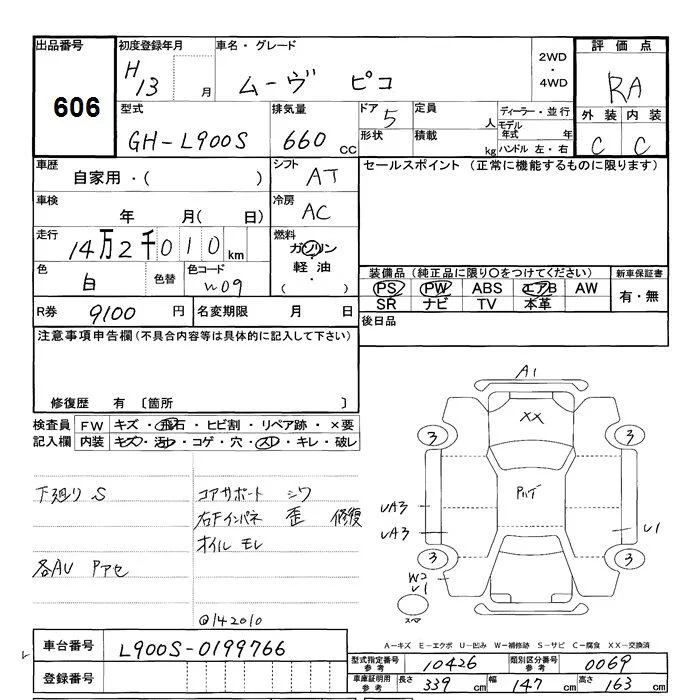 出品番号 初度登録年月 車名・グレード 2WD・4WD 評価点
606 H13 月 ムーヴ ピコ RA
型式 排気量 ドア 5 定員 人 ディーラー・並行 外装 内装
GH-L900S 660 cc 形状 積載 kg モデル年式 年 ハンドル 左・右 C C
車歴 自家用・( ) シフト AT セールスポイント (正常に機能するものに限ります)
車検 年 月( 日) 冷房 AC
走行 14万2千010km 燃料 ガソリン・軽油・( )
色 白 色替 色コード W09 装備品 (純正品に限り〇をつけてください) 新車保証書
PS PW ABS エアB AW 有・無
SR ナビ TV 本革
R券 9100 円 名変期限 月 日 後日品
注意事項申告欄(不具合内容等は具体的に記入して下さい)
修復歴 有 〔箇所 〕
検査員 FW キズ・飛石・ヒビ割・リペア跡・×要
記入欄 内装 キズ・汚レ・コゲ・穴・スレ・キレ・破レ
下廻り S コアサポート シワ
右Fインパネ 歪 修復
オイル モレ
各AU Pアセ
@142010
A1
XX
3 3
UA3
UA3
U1
3 3
W2
U1
スペア
A-キズ E-エクボ U-凹み W-補修跡 S-サビ C-腐食 XX-交換済
車台番号 L900S-0199766
登録番号
型式指定番号 参考 10426 類別区分番号 参考 0069
車庫証明用 参考 長さ 339 cm 幅 147 cm 高さ 163 cm